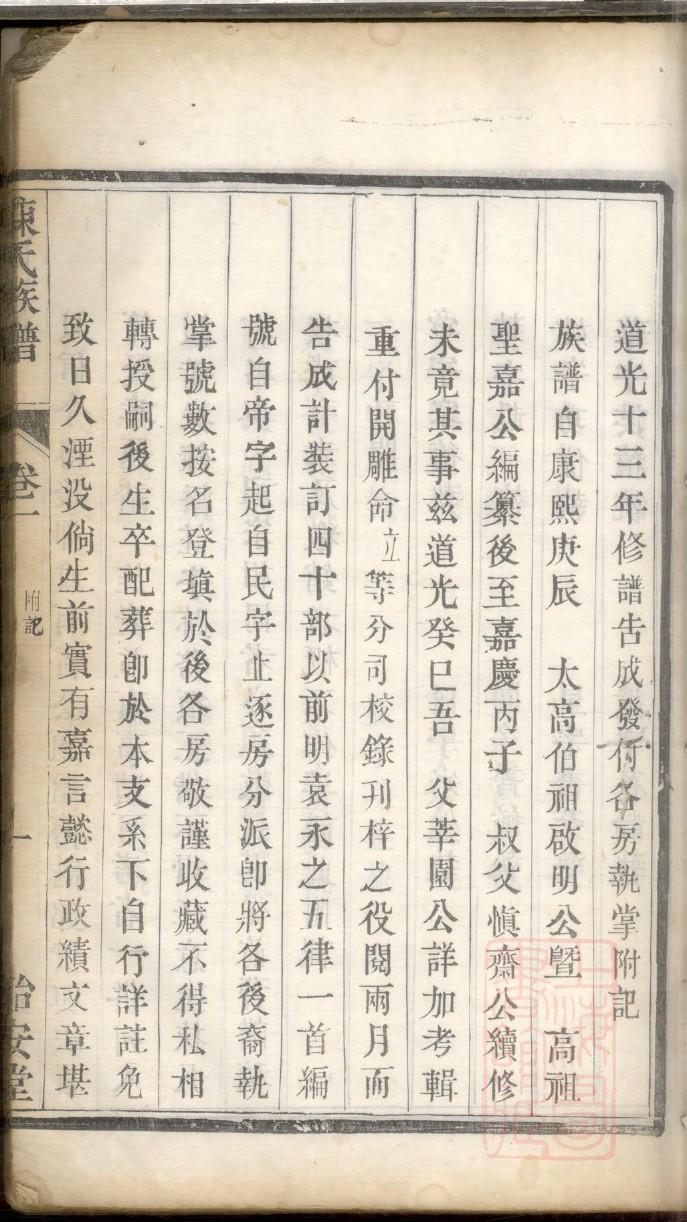 道光十三年修譜吿成發付各房執掌附記
族譜自康熙庚辰　太高伯祖啟明公曁　高祖
聖嘉公編纂後至嘉慶丙子　叔父愼齋公續修
未竟其事玆道光癸巳吾　父莘園公詳加考輯
重付開雕命立等分司校錄刊梓之役閱兩月而
吿成計裝訂四十部以前明袁永之五律一首編
號自帝字起自民字止逐房分派卽將各後裔執
掌號數按名登塡於後各房敬謹收藏不得私相
轉授嗣後生卒配葬卽於本支系下自行詳註免
致日久湮没倘生前實有嘉言懿行政績文章堪
陳氏族譜
卷一
附記
一
怡安堂